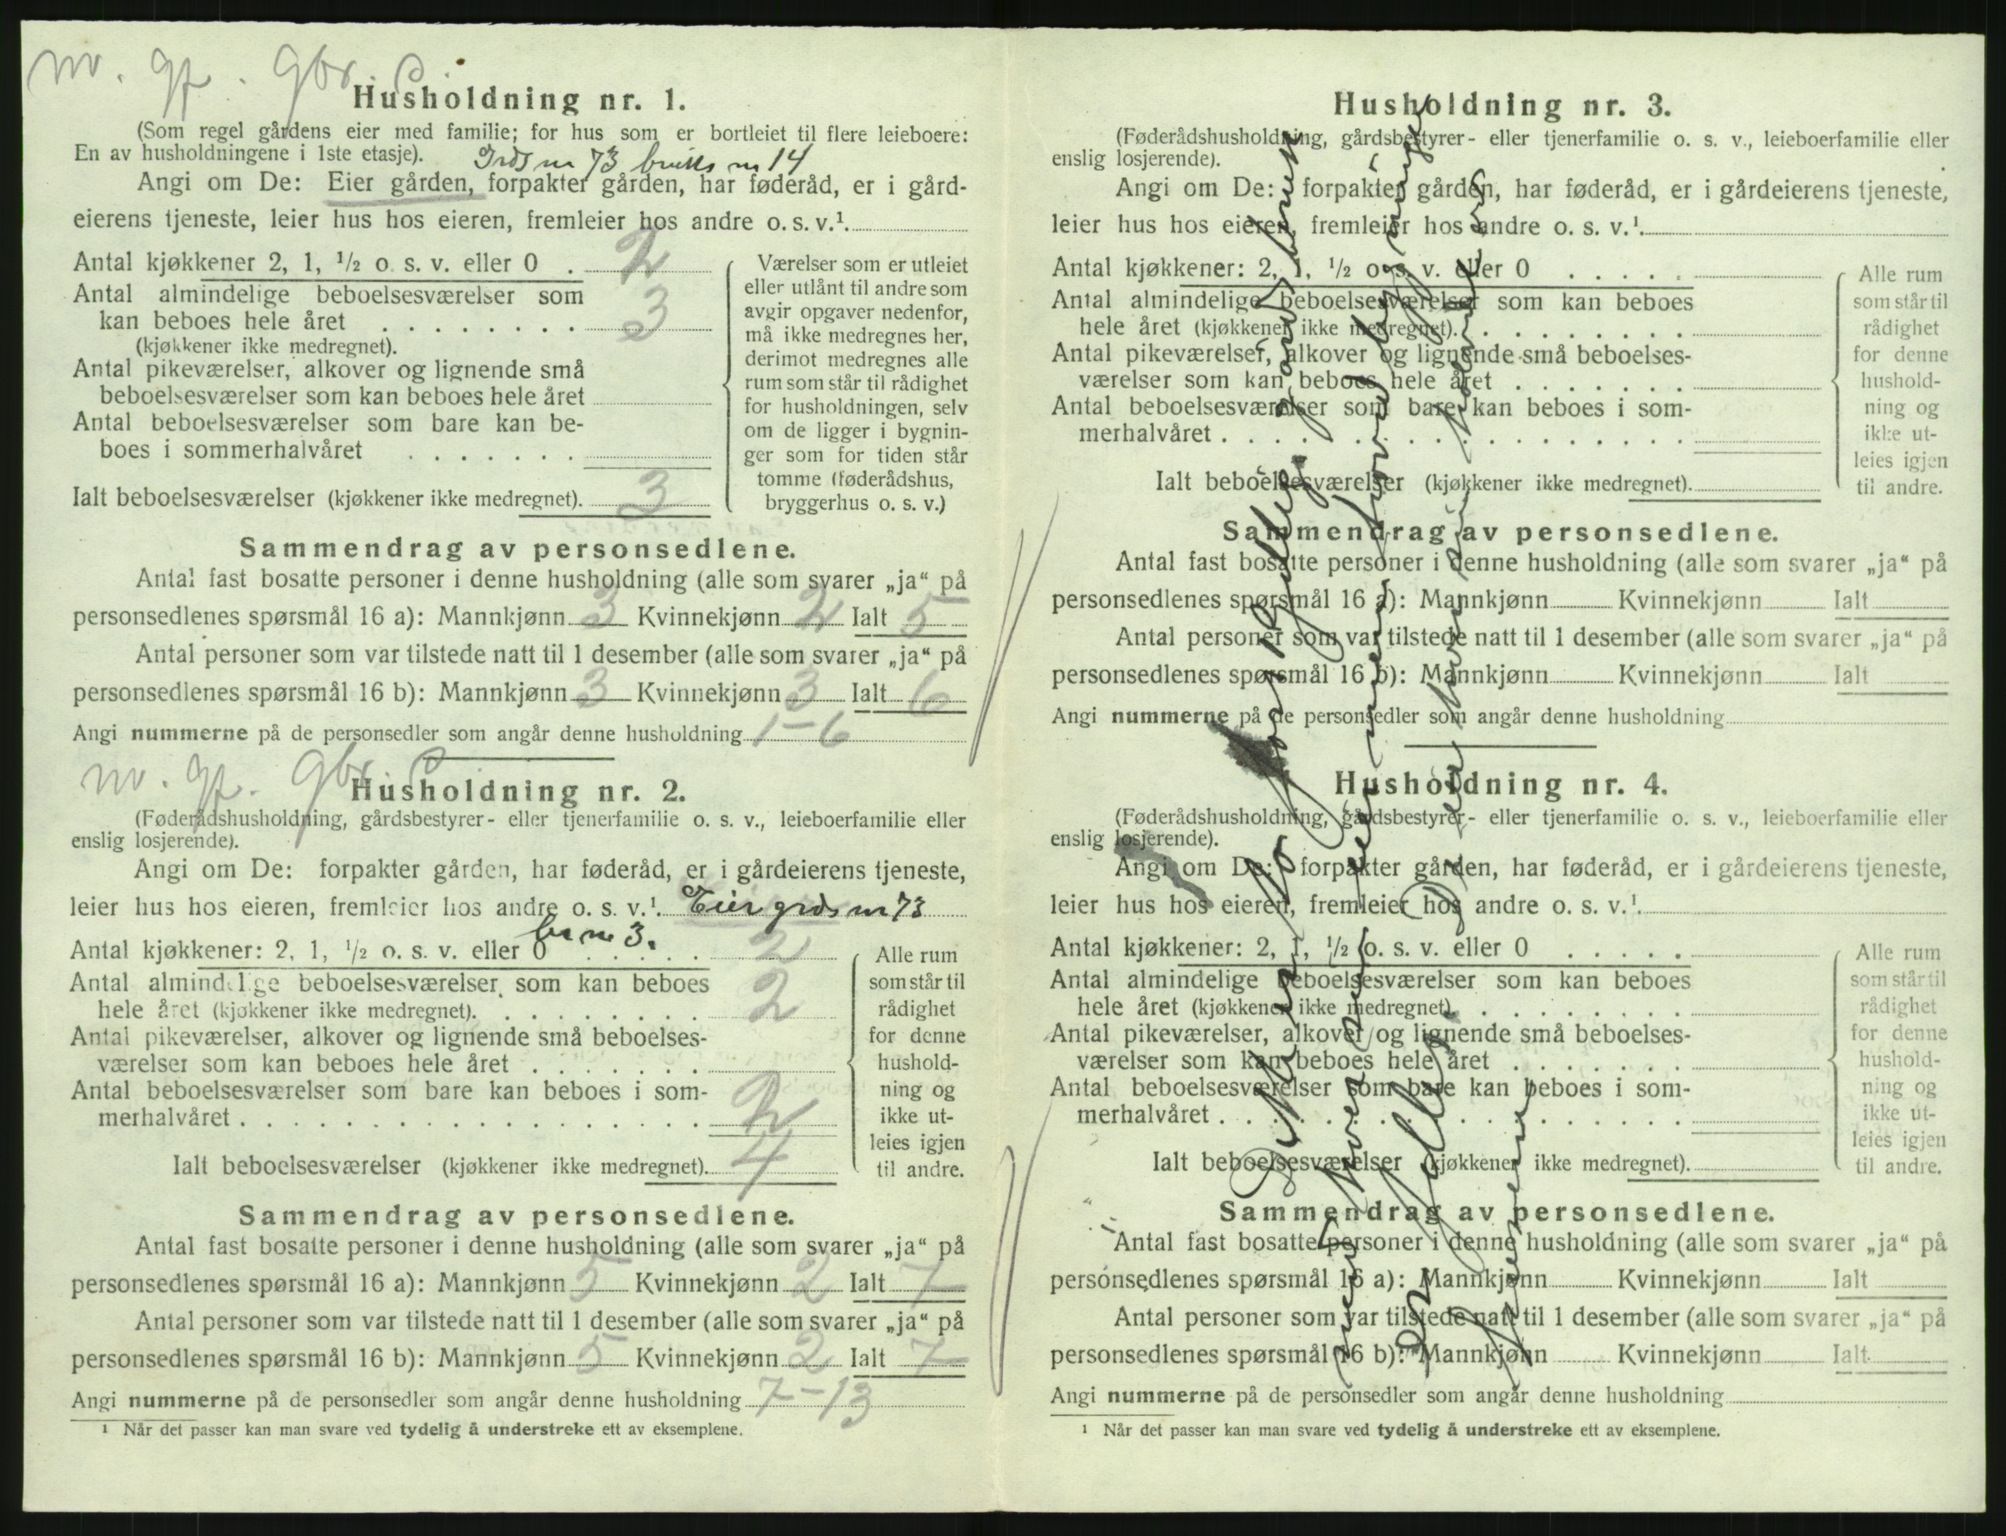 nv. gf. gbr. S.
Husholdning nr. 1.
(Som regel gårdens eier med familie; for hus som er bortleiet til flere leieboere:
En av husholdningene i 1ste etasje). Grds nr 73 bruks nr 14
Angi om De: Eier gården, forpakter gården, har føderåd, er i gård-
eierens tjeneste, leier hus hos eieren, fremleier hos andre o. s. v.¹.
Antal kjøkkener 2, 1, ½ o. s. v. eller 0 . 2
Antal almindelige beboelsesværelser som
kan beboes hele året . . . . . . . . 3
(kjøkkener ikke medregnet).
Antal pikeværelser, alkover og lignende små
beboelsesværelser som kan beboes hele året
Antal beboelsesværelser som bare kan be-
boes i sommerhalvåret . . . . . . .
Ialt beboelsesværelser (kjøkkener ikke medregnet). 3
Værelser som er utleiet
eller utlånt til andre som
avgir opgaver nedenfor,
må ikke medregnes her,
derimot medregnes alle
rum som står til rådighet
for husholdningen, selv
om de ligger i bygnin-
ger som for tiden står
tomme (føderådshus,
bryggerhus o. s. v.)
Sammendrag av personsedlene.
Antal fast bosatte personer i denne husholdning (alle som svarer „ja“ på
personsedlenes spørsmål 16 a): Mannkjønn 3 Kvinnekjønn 2 Ialt 5
Antal personer som var tilstede natt til 1 desember (alle som svarer „ja“ på
personsedlenes spørsmål 16 b): Mannkjønn 3 Kvinnekjønn 3 Ialt 6
Angi nummerne på de personsedler som angår denne husholdning 1-6
nv. gf. gbr. S
Husholdning nr. 2.
(Føderådshusholdning, gårdsbestyrer- eller tjenerfamilie o. s. v., leieboerfamilie eller
enslig losjerende).
Angi om De: forpakter gården, har føderåd, er i gårdeierens tjeneste,
leier hus hos eieren, fremleier hos andre o. s. v.¹. Eier grds nr 73
br nr 3.
Antal kjøkkener: 2, 1, ½ o. s. v. eller 0 . . . . . 2
Antal almindelige beboelsesværelser som kan beboes
hele året (kjøkkener ikke medregnet). . . . . . . . . 2
Antal pikeværelser, alkover og lignende små beboelses-
værelser som kan beboes hele året . . . . . . .
Antal beboelsesværelser som bare kan beboes i som-
merhalvåret . . . . . . . . . . . . . . . . . . 2
Ialt beboelsesværelser (kjøkkener ikke medregnet). 4
Alle rum
som står til
rådighet
for denne
hushold-
ning og
ikke ut-
leies igjen
til andre.
Sammendrag av personsedlene.
Antal fast bosatte personer i denne husholdning (alle som svarer „ja“ på
personsedlenes spørsmål 16 a): Mannkjønn 5 Kvinnekjønn 2 Ialt 7
Antal personer som var tilstede natt til 1 desember (alle som svarer „ja“ på
personsedlenes spørsmål 16 b): Mannkjønn 5 Kvinnekjønn 2 Ialt 7
Angi nummerne på de personsedler som angår denne husholdning 7-13
¹ Når det passer kan man svare ved tydelig å understreke ett av eksemplene.
Husholdning nr. 3.
(Føderådshusholdning, gårdsbestyrer- eller tjenerfamilie o. s. v., leieboerfamilie eller
enslig losjerende).
Angi om De: forpakter gården, har føderåd, er i gårdeierens tjeneste,
leier hus hos eieren, fremleier hos andre o. s. v.¹.
Antal kjøkkener: 2, 1, ½ o. s. v. eller 0 . . . . .
Antal almindelige beboelsesværelser som kan beboes
hele året (kjøkkener ikke medregnet). . . . . . . . .
Antal pikeværelser, alkover og lignende små beboelses-
værelser som kan beboes hele året . . . . . . .
Antal beboelsesværelser som bare kan beboes i som-
merhalvåret . . . . . . . . . . . . . . . . . .
Ialt beboelsesværelser (kjøkkener ikke medregnet).
Alle rum
som står til
rådighet
for denne
hushold-
ning og
ikke ut-
leies igjen
til andre.
Sammendrag av personsedlene.
Antal fast bosatte personer i denne husholdning (alle som svarer „ja“ på
personsedlenes spørsmål 16 a): Mannkjønn Kvinnekjønn Ialt
Antal personer som var tilstede natt til 1 desember (alle som svarer „ja“ på
personsedlenes spørsmål 16 b): Mannkjønn Kvinnekjønn Ialt
Angi nummerne på de personsedler som angår denne husholdning
Husholdning nr. 4.
(Føderådshusholdning, gårdsbestyrer- eller tjenerfamilie o. s. v., leieboerfamilie eller
enslig losjerende).
Angi om De: forpakter gården, har føderåd, er i gårdeierens tjeneste,
leier hus hos eieren, fremleier hos andre o. s. v.¹.
Antal kjøkkener: 2, 1, ½ o. s. v. eller 0 . . . . .
Antal almindelige beboelsesværelser som kan beboes
hele året (kjøkkener ikke medregnet). . . . . . . . .
Antal pikeværelser, alkover og lignende små beboelses-
værelser som kan beboes hele året . . . . . . .
Antal beboelsesværelser som bare kan beboes i som-
merhalvåret . . . . . . . . . . . . . . . . . .
Ialt beboelsesværelser (kjøkkener ikke medregnet).
Alle rum
som står til
rådighet
for denne
hushold-
ning og
ikke ut-
leies igjen
til andre.
Sammendrag av personsedlene.
Antal fast bosatte personer i denne husholdning (alle som svarer „ja“ på
personsedlenes spørsmål 16 a): Mannkjønn Kvinnekjønn Ialt
Antal personer som var tilstede natt til 1 desember (alle som svarer „ja“ på
personsedlenes spørsmål 16 b): Mannkjønn Kvinnekjønn Ialt
Angi nummerne på de personsedler som angår denne husholdning
¹ Når det passer kan man svare ved tydelig å understreke ett av eksemplene.